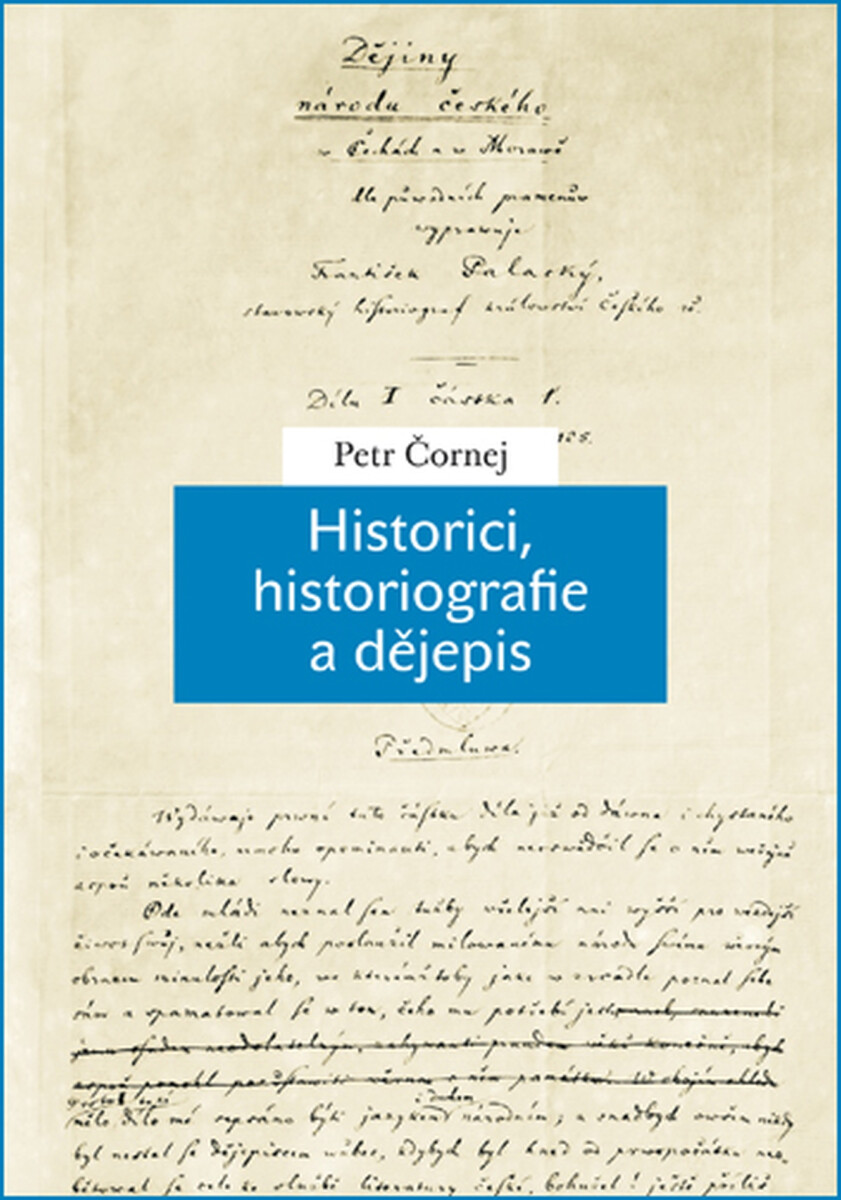 Dějiny
národu českého
w Čechách a w Morawě
dle půwodních pramenůw
wyprawuje
František Palacký,
stawowský historiograf králowství Českého
Dílu I částka 1.
Petr Čornej
Historici,
historiografie
a dějepis
Předmluwa.
Wydáwaje prwní tuto částku díla již od dáwna i chystaného
i očekáwaného, nemohu opominauti, abych neoswědčil se o něm
aspoň několika slowy.
Ode mládí neznal sem tužby wšelijší ani wyšší pro
žiwot swůj, nežli abych poslaužil milowanému národu swému wěrným
obrazem minulosti jeho, we kterémžtoby jako w zrcadle poznal sebe
sám a zpamatowal se w tom, čeho mu potřebí jest
i duchem
mělo dílo mé sepsáno býti jazykem národním; a snadbych owšem nikdy
byl nestal se dějepiscem wůbec, kdybych byl hned od prwopočátku
se cele ke službě literatury české, bohužel! ještě příliš